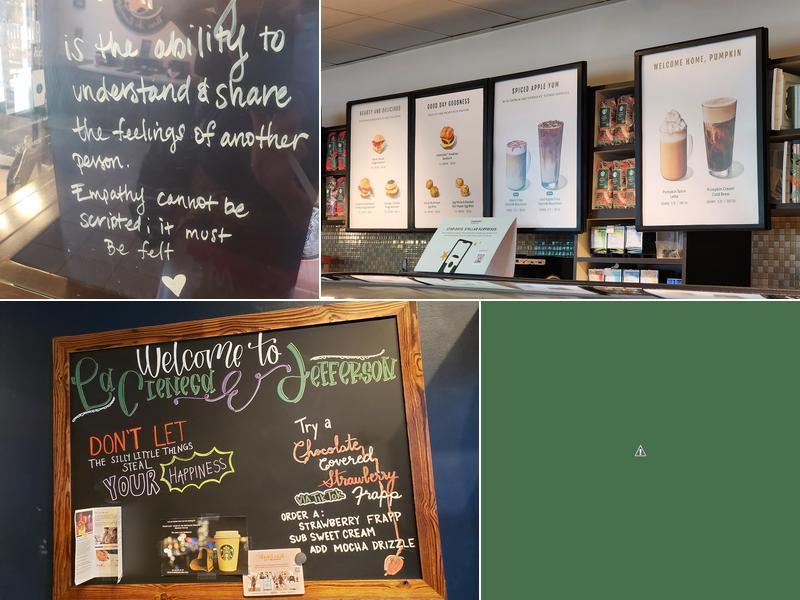 is the ability to
understand & share
the feelings of another
person.
Empathy cannot be
scripted; it must
Be felt
HEARTY AND DELICIOUS
GOOD DAY GOODNESS
SPICED APPLE YUM
WELCOME HOME, PUMPKIN
Pumpkin Spice
Latte
Pumpkin Cream
Cold Brew
Welcome to
La Cienega & Jefferson
DON'T LET
THE SILLY LITTLE THINGS
STEAL
YOUR HAPPINESS
Try a
Chocolate
Covered
Strawberry
VIA TIKTOK Frapp
ORDER A:
STRAWBERRY FRAPP
SUB SWEET CREAM
ADD MOCHA DRIZZLE